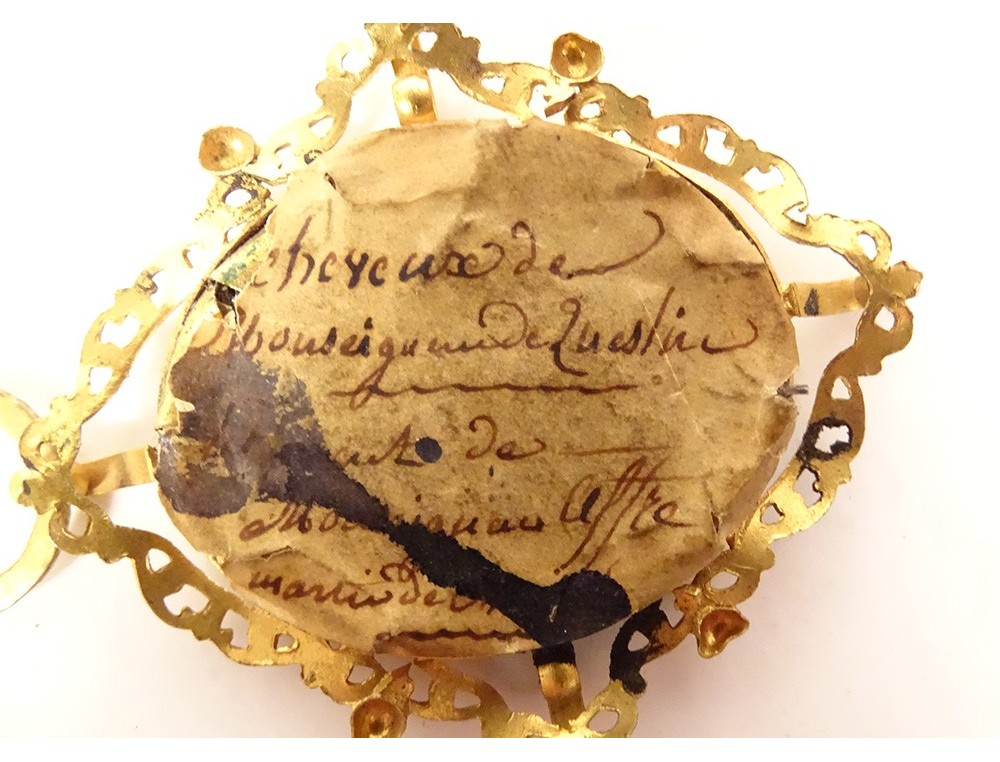 cheveux de
Monseigneur de Quesline
de
Monseigneur Affre
martir de